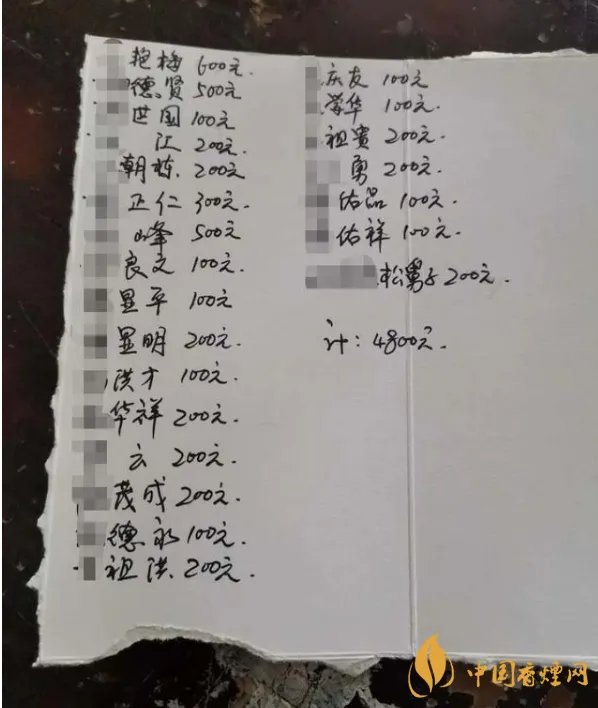 艳梅 600元.
德贤 500元
世国 100元
江 200元.
朝栋 200元
正仁 300元.
峰 500元
良文 100元.
显平 100元
显明 200元.
洪才 100元.
华祥 200元.
云 200元.
茂成 200元.
德永 100元.
祖洪 200元.
庆友 100元
荣华 100元.
祖贵 200元.
勇 200元.
佑品 100元.
佑祥 100元.
松舅子 200元.
计: 4800元.
中国香烟网